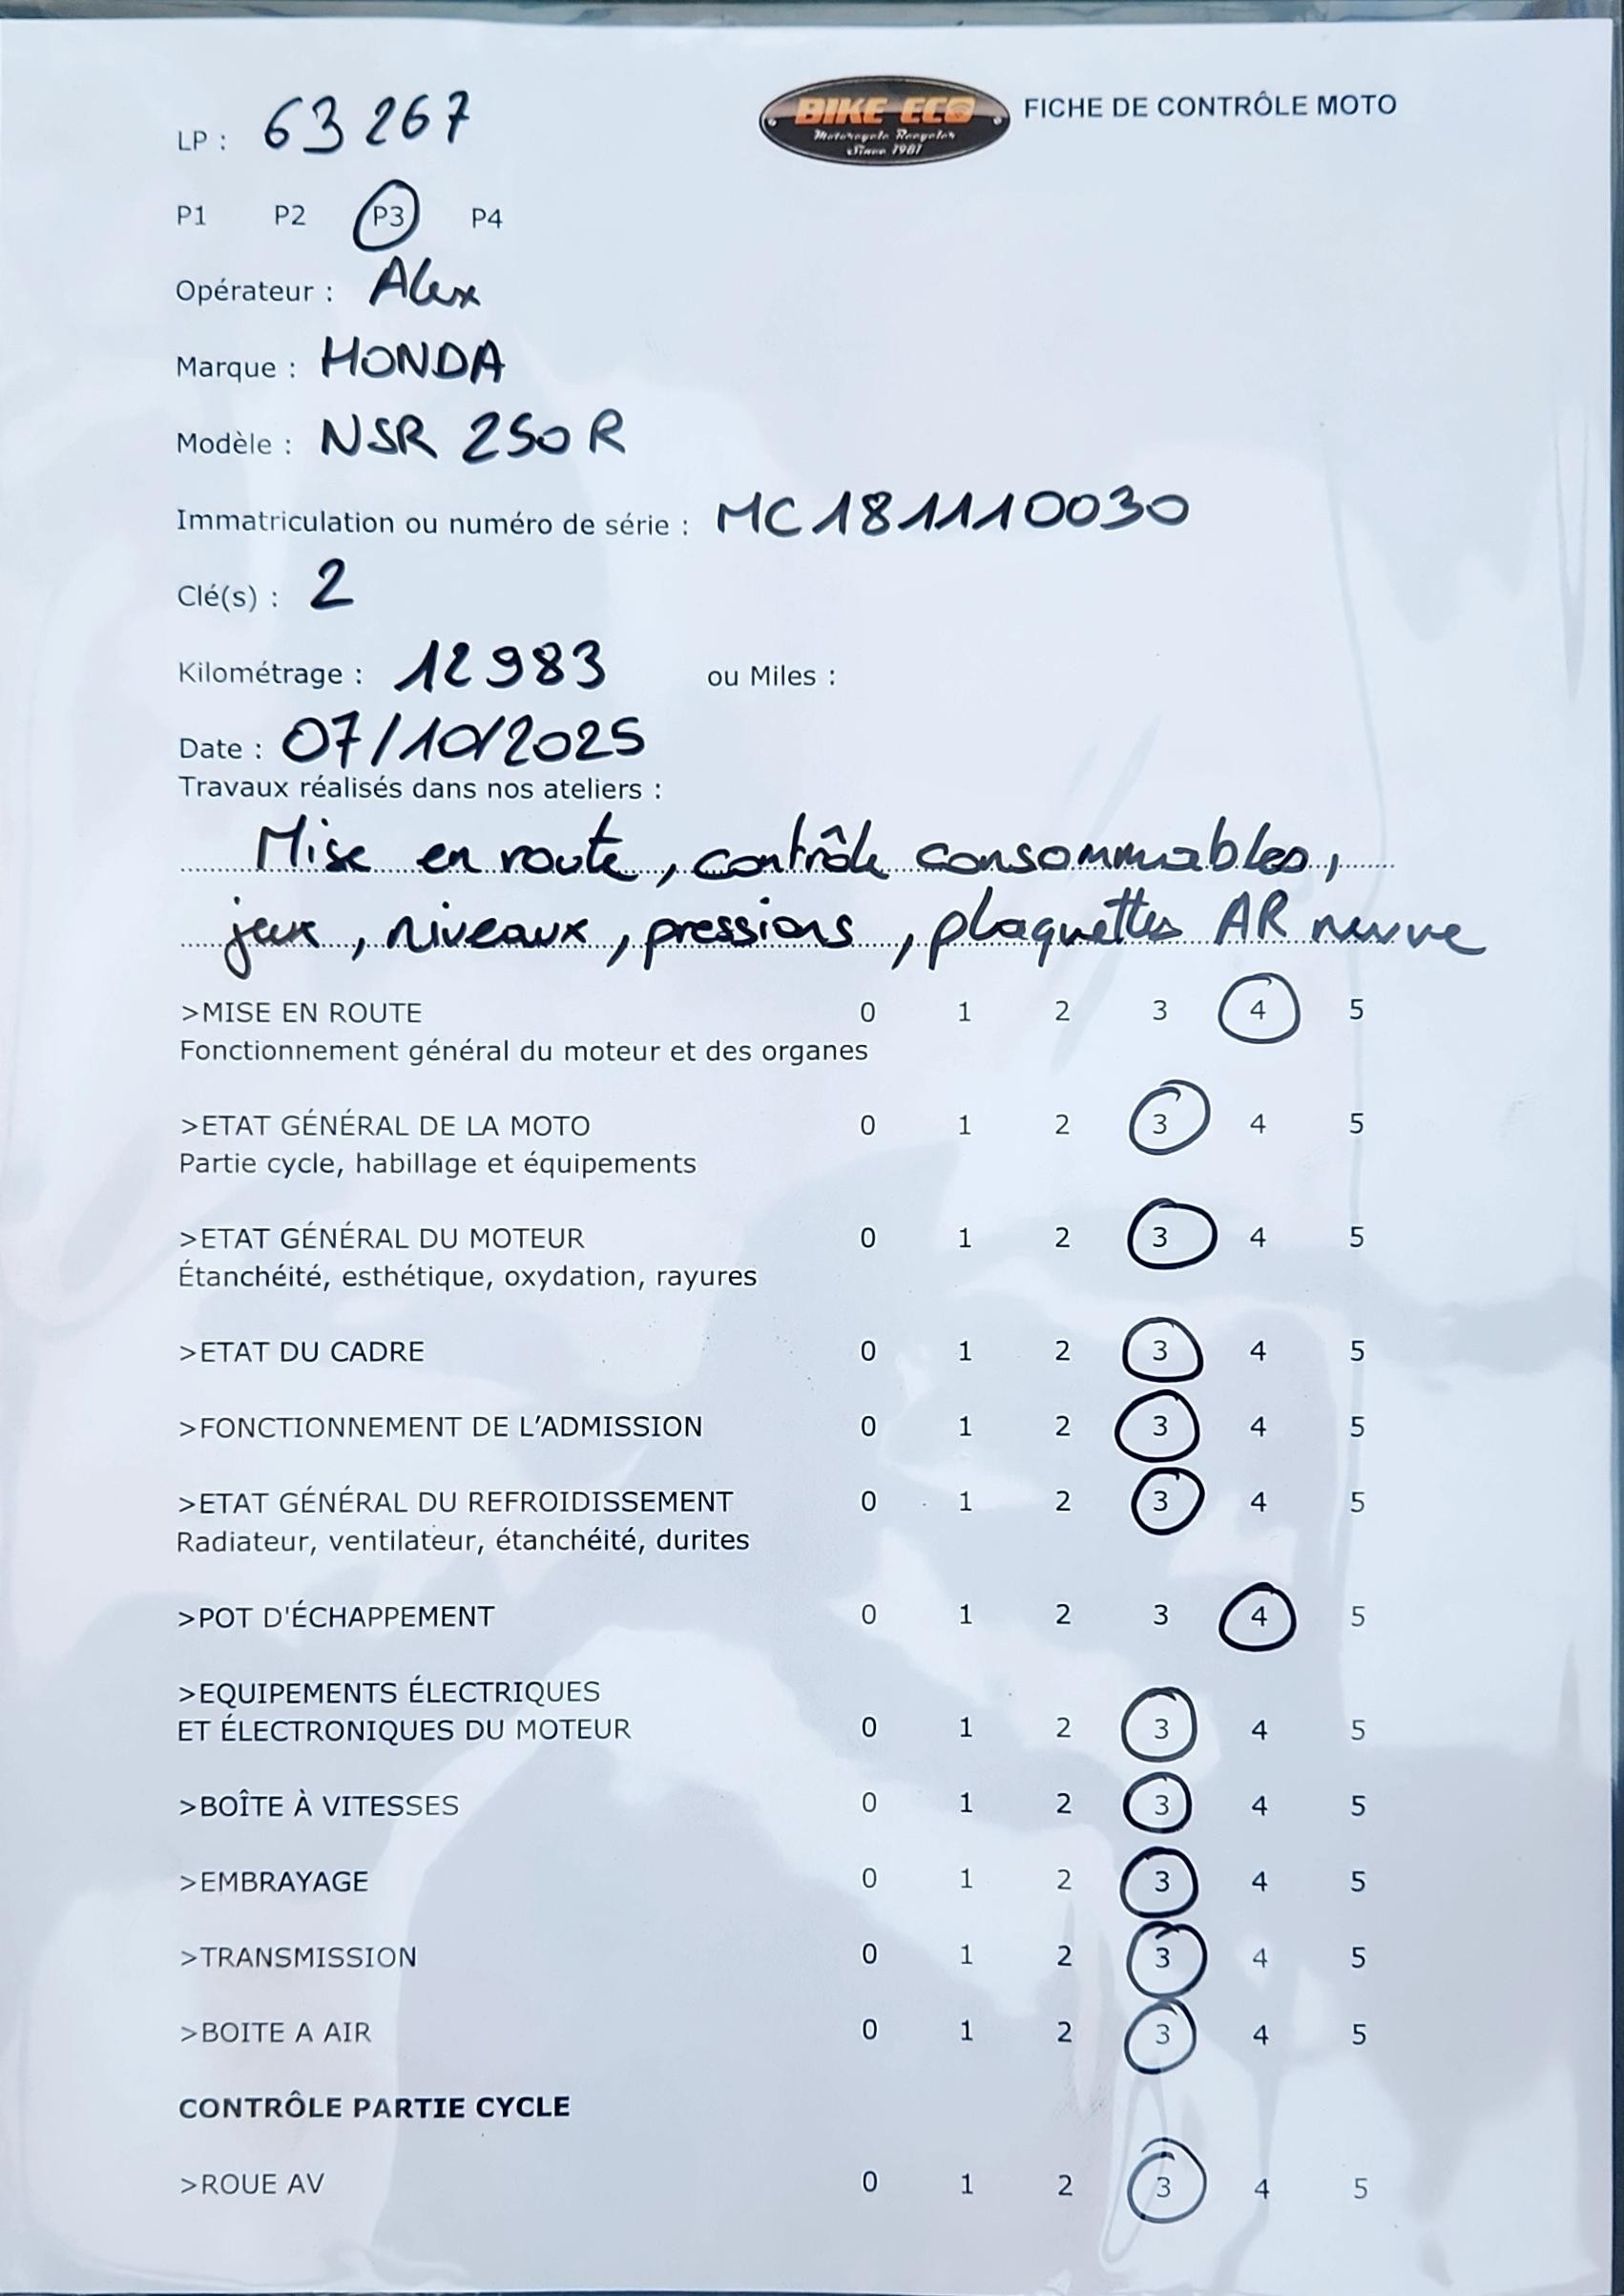 BIKE ECO
Motorcycle Recycler
Since 1981
FICHE DE CONTRÔLE MOTO
LP : 63 267
P1 P2 P3 P4
Opérateur : Alex
Marque : HONDA
Modèle : NSR 250 R
Immatriculation ou numéro de série : MC181110030
Clé(s) : 2
Kilométrage : 12983 ou Miles :
Date : 07/10/2025
Travaux réalisés dans nos ateliers :
Mise en route, contrôle consommables,
jeux, niveaux, pressions, plaquettes AR neuve
>MISE EN ROUTE 0 1 2 3 4 5
Fonctionnement général du moteur et des organes
>ETAT GÉNÉRAL DE LA MOTO 0 1 2 3 4 5
Partie cycle, habillage et équipements
>ETAT GÉNÉRAL DU MOTEUR 0 1 2 3 4 5
Étanchéité, esthétique, oxydation, rayures
>ETAT DU CADRE 0 1 2 3 4 5
>FONCTIONNEMENT DE L'ADMISSION 0 1 2 3 4 5
>ETAT GÉNÉRAL DU REFROIDISSEMENT 0 1 2 3 4 5
Radiateur, ventilateur, étanchéité, durites
>POT D'ÉCHAPPEMENT 0 1 2 3 4 5
>EQUIPEMENTS ÉLECTRIQUES
ET ÉLECTRONIQUES DU MOTEUR 0 1 2 3 4 5
>BOÎTE À VITESSES 0 1 2 3 4 5
>EMBRAYAGE 0 1 2 3 4 5
>TRANSMISSION 0 1 2 3 4 5
>BOITE A AIR 0 1 2 3 4 5
CONTRÔLE PARTIE CYCLE
>ROUE AV 0 1 2 3 4 5